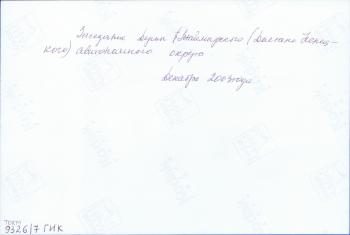 Заседание Думы Таймырского (Долгано-Ненец-
кого) автономного округа
Декабрь 2003 года
ТОКМ
9326/7 ГИК